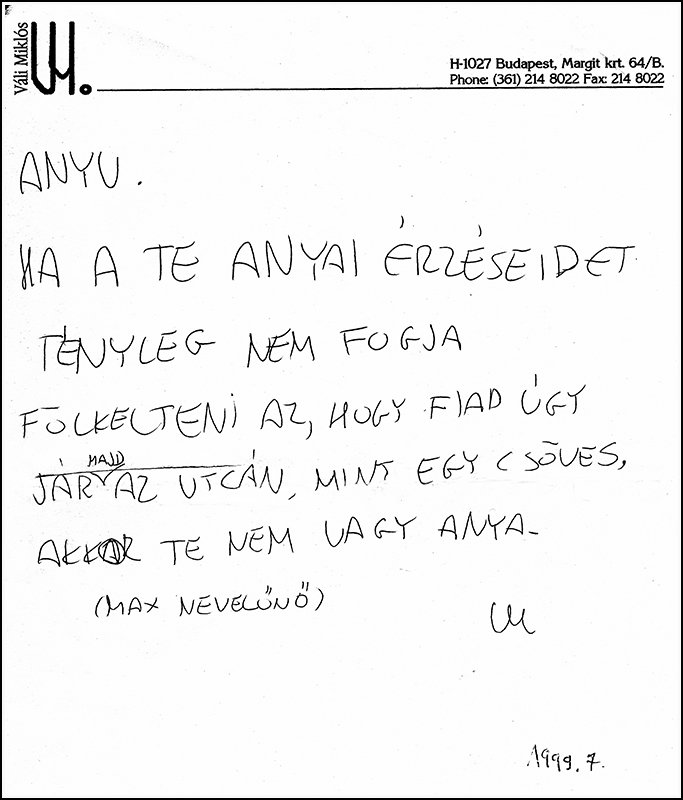 Váli Miklós
VM.
H-1027 Budapest, Margit krt. 64/B.
Phone: (361) 214 8022 Fax: 214 8022
ANYU.
HA A TE ANYAI ÉRZÉSEIDET
TÉNYLEG NEM FOGJA
FÖLKELTENI AZ, HOGY FIAD ÚGY
JÁR MAJD AZ UTCÁN, MINT EGY CSÖVES,
AKKOR TE NEM VAGY ANYA-
(MAX NEVELŰNŐ)
VM
1999. 7.